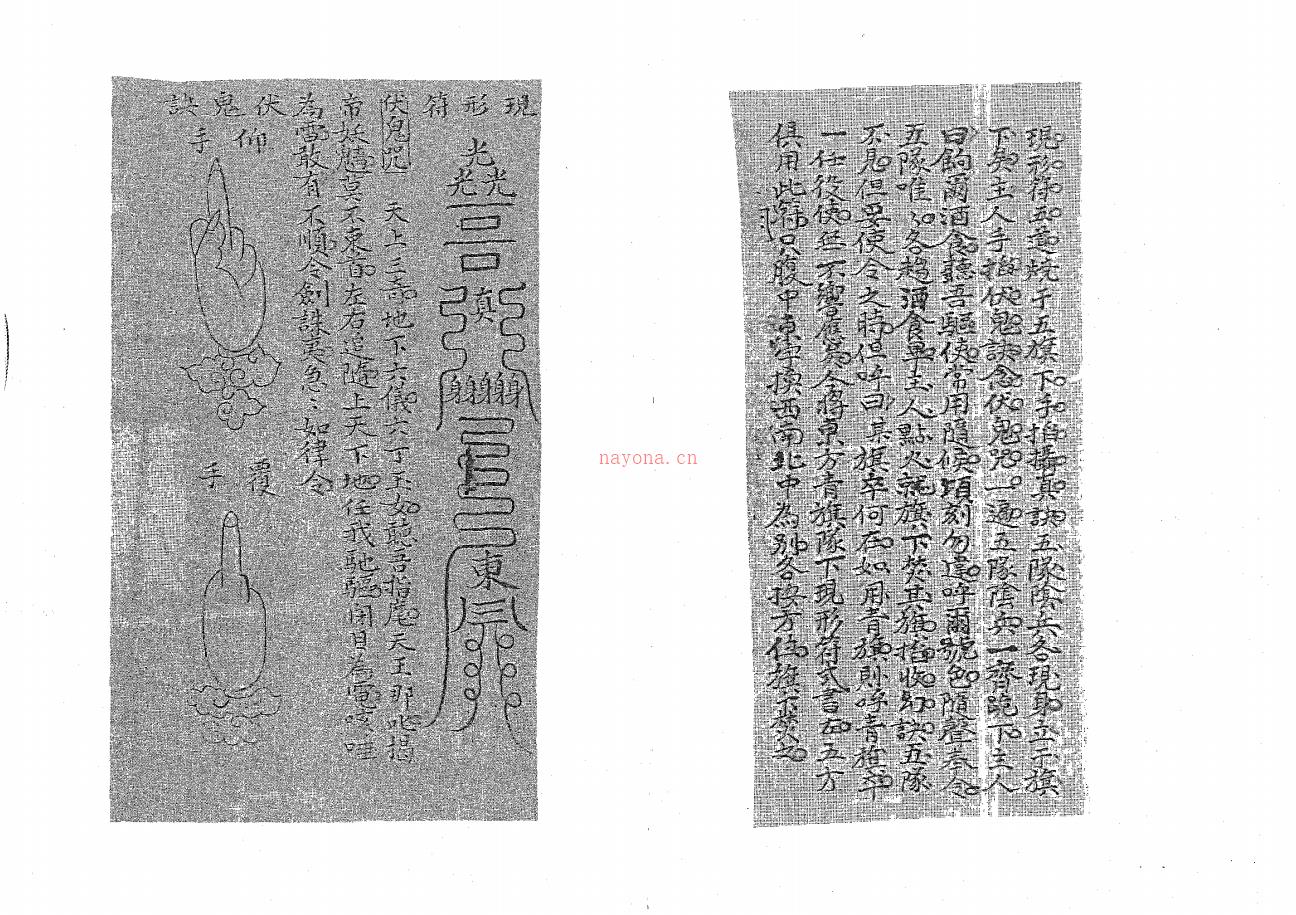 現形符五道燒于五旗下手掐攝真訣五隊陰兵各現身立于旗
下矣主人手掐伏鬼訣念伏鬼咒一遍五隊陰兵一齊跪下主人
曰餉爾酒食聽吾驅使常用隨候頃刻勿違呼爾號色隨聲奉令
五隊唯〻各趨酒食畢主人點火就旗下焚其旗掐收訣五隊
不見但要使令之時但呼曰某旗卒何在如用青旗則呼青旗卒
一任役使無不響應矣今將東方青旗隊下現形符式書右五方
俱用此符只腹中東字換西南北中為別各按方位旗下焚之
現形符
光
光光
真
身身身身
東
伏鬼咒 天上三奇地下六儀六丁玉女聽吾指麾天王那吒揭
帝妖魑莫不束首左右追隨上天下地任我馳驅閉目為電咳唾
為雷敢有不順令劍誅夷急〻如律令
伏鬼訣
仰手
覆手
nayona.cn